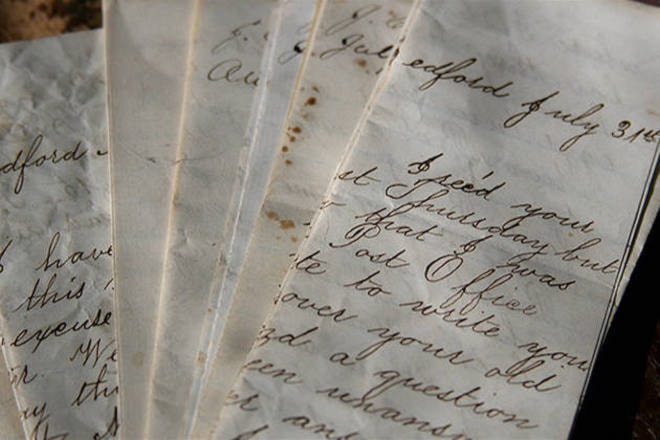 dford
have
this
excuse
r. We
y th
J.
Au
J.
Jul
edford July 31st
I rec'd your
st Thursday but
that I was
Post Office
te to write you
over your old
nd a question
een unansw
er an